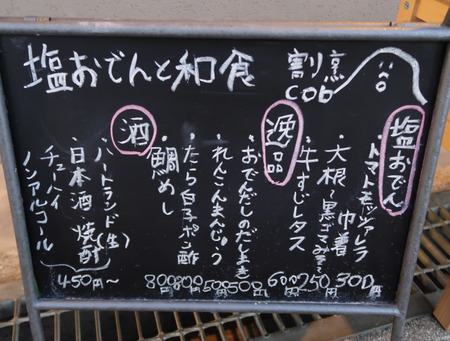 塩おでんと和食
割烹
COO
塩おでん
トマトモッツァレラ
巾着 300円
・大根〜黒ごまみそ〜 250円
・牛すじレタス 600円
逸品
・おでんだしのだしまき
・れんこんまんじゅう
・たら白子ポン酢 800
・鯛めし 800
酒
・ハートランド(生)
・日本酒・焼酎
チューハイ
ノンアルコール
450円〜